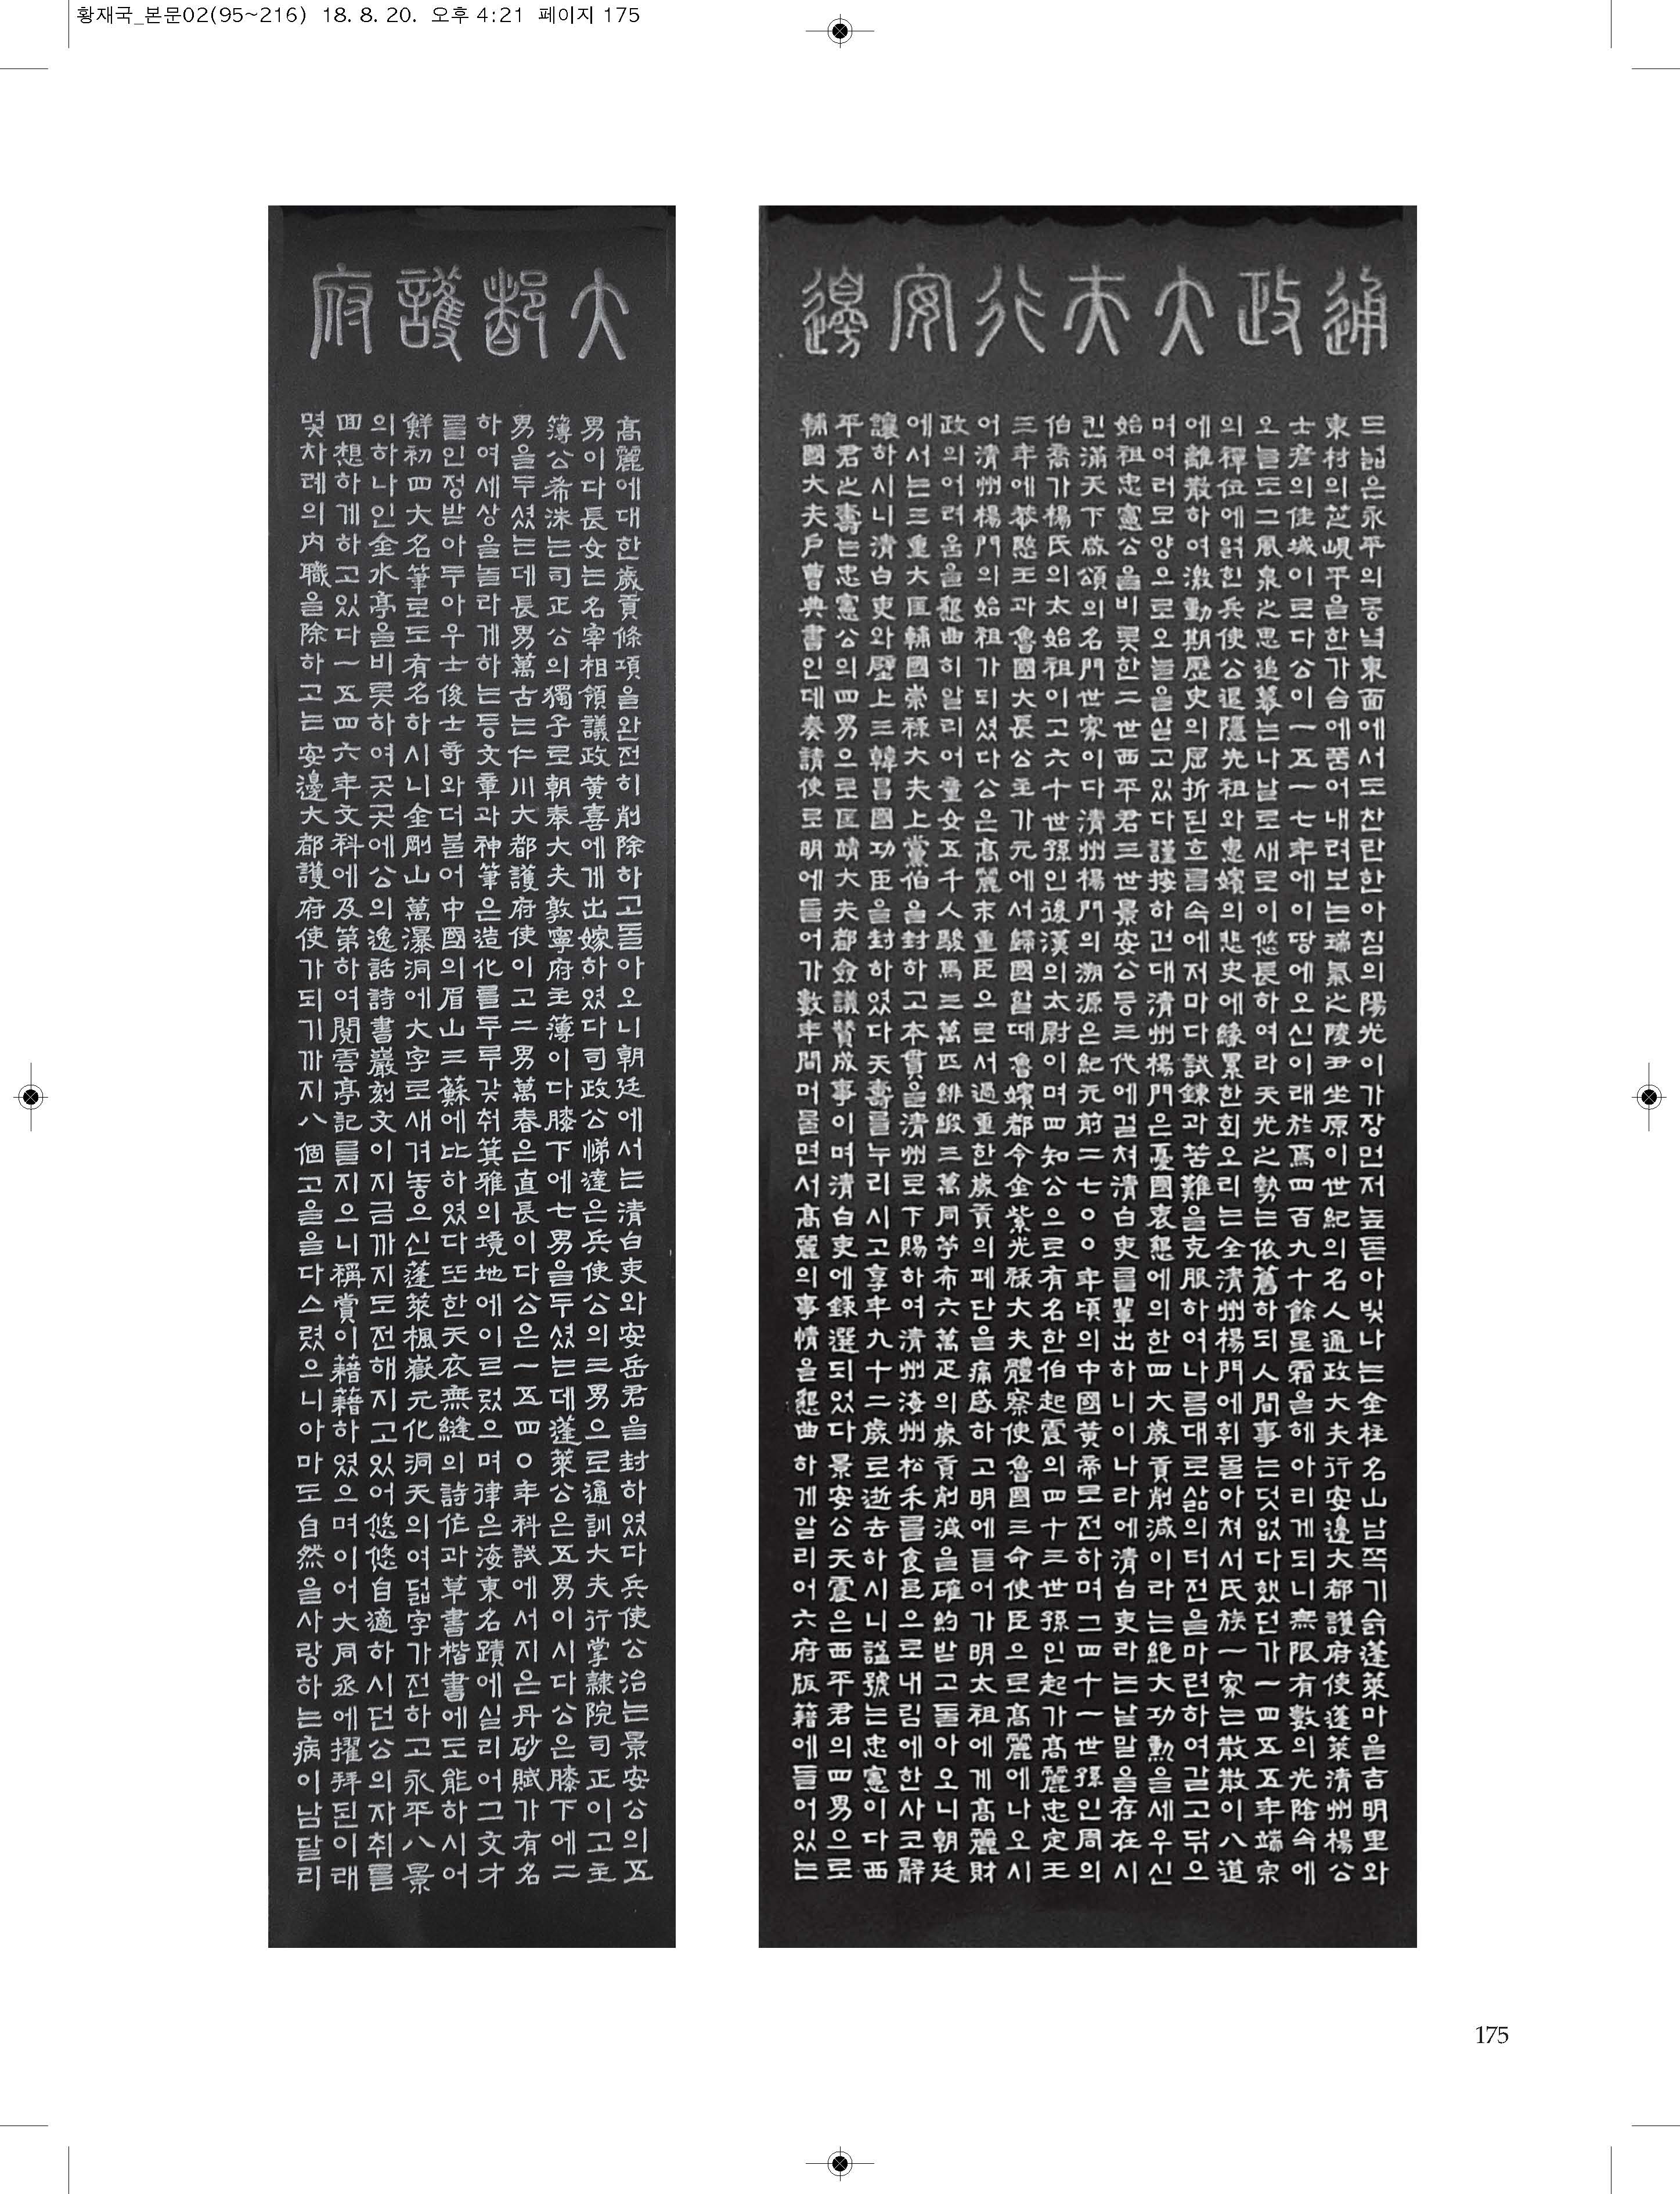 황재국_본문02(95~216) 18. 8. 20. 오후 4:21 페이지 175
通政大夫行安邊
드넓은永平의동녘東面에서도찬란한아침의陽光이가장먼저높돋아빛나는金柱名山남쪽기슭蓬萊마을吉明里와
東村의芝峴平을한가슴에품어내려보는瑞氣之陵尹坐原이世紀의名人通政大夫行安邊大都護府使蓬萊淸州楊公
士彦의佳城이로다公이一五一七年에이땅에오신이래於焉四百九十餘星霜을헤아리게되니無限有數의光陰속에
오늘도그風泉之思追慕는나날로새로이悠長하여라天光之勢는依舊하되人間事는덧없다했던가一四五五年端宗
의禪位에얽힌兵使公退隱光祖와惠嬪의悲史에緣累한회오리는全淸州楊門에휘몰아쳐서氏族一家는散散이八道
에離散하여激動期歷史의屈折된흐름속에저마다試鍊과苦難을克服하여나름대로삶의터전을마련하여갈고닦으
며여러모양으로오늘을살고있다謹按하건대淸州楊門은憂國衷懇에의한四大歲貢削減이라는絶大功勳을세우신
始祖忠憲公을비롯한二世西平君三世景安公등三代에걸쳐淸白吏를輩出하니이나라에淸白吏라는낱말을存在시
킨滿天下啟頌의名門世家이다淸州楊門의溯源은紀元前二七〇〇年頃의中國黃帝로전하며그四十一世孫인周의
伯喬가楊氏의太始祖이고六十世孫인後漢의太尉이며四知公으로有名한伯起震의四十三世孫인起가高麗忠定王
三年에恭愍王과魯國大長公主가元에서歸國할때魯嬪都令金紫光祿大夫體察使魯國三命使臣으로高麗에나오시
어淸州楊門의始祖가되셨다公은高麗末重臣으로서過重한歲貢의폐단을痛感하고明에들어가明太祖에게高麗財
政의어려움을懇曲히알리어童女五千人駿馬三萬匹緋緞三萬同苧布六萬疋의歲貢削減을確約받고돌아오니朝廷
에서는三重大匡輔國崇祿大夫上黨伯을封하고本貫을淸州로下賜하여淸州海州松禾를食邑으로내림에한사코辭
讓하시니淸白吏와壁上三韓昌國功臣을封하였다天壽를누리시고享年九十二歲로逝去하시니諡號는忠憲이다西
平君之壽는忠憲公의四男으로匡靖大夫都僉議贊成事이며淸白吏에錄選되었다景安公天震은西平君의四男으로
輔國大夫戶曹典書인데奏請使로明에들어가數年間머물면서高麗의事情을懇曲하게알리어六府版籍에들어있는
大都護府
高麗에대한歲貢條項을완전히削除하고돌아오니朝廷에서는淸白吏와安岳君을封하였다兵使公治는景安公의五
男이다長女는名宰相領議政黃喜에게出嫁하였다司政公悌達은兵使公의三男으로通訓大夫行掌隷院司正이고主
簿公希洙는司正公의獨子로朝奉大夫敦寧府主簿이다膝下에七男을두셨는데蓬萊公은五男이시다公은膝下에二
男을두셨는데長男萬古는仁川大都護府使이고二男萬春은直長이다公은一五四〇年科試에서지은丹砂賦가有名
하여세상을놀라게하는등文章과神筆은造化를두루갖춰箕雅의境地에이르렀으며律은海東名蹟에실리어그文才
를인정받아두아우士俊士奇와더불어中國의眉山三蘇에比하였다또한天衣無縫의詩作과草書楷書에도能하시어
鮮初四大名筆로도有名하시니金剛山萬瀑洞에大字로새겨놓으신蓬萊楓嶽元化洞天의여덟字가전하고永平八景
의하나인金水亭을비롯하여곳곳에公의逸話詩書巖刻文이지금까지도전해지고있어悠悠自適하시던公의자취를
回想하게하고있다一五四六年文科에及第하여閱雲亭記를지으니稱賞이藉藉하였으며이어大同丞에擢拜된이래
몇차례의內職을除하고는安邊大都護府使가되기까지八個고을을다스렸으니아마도自然을사랑하는病이남달리
175